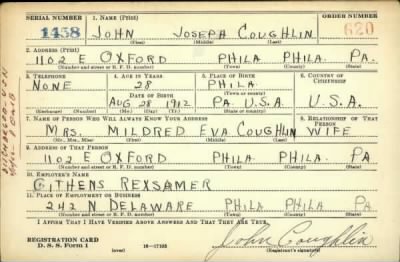 SERIAL NUMBER 1. NAME (Print) ORDER NUMBER
1458 JOHN JOSEPH COUGHLIN 620
(First) (Middle) (Last)
2. ADDRESS (Print)
1102 E OXFORD PHILA PHILA PA.
(Number and street or R. F. D. number) (Town) (County) (State)
3. TELEPHONE 4. AGE IN YEARS 5. PLACE OF BIRTH 6. COUNTRY OF CITIZENSHIP
NONE 28 PHILA.
DATE OF BIRTH
AUG 28 1912 PA. U.S.A U.S.A.
(Exchange) (Number) (Mo.) (Day) (Yr.) (State or country)
7. NAME OF PERSON WHO WILL ALWAYS KNOW YOUR ADDRESS 8. RELATIONSHIP OF THAT PERSON
MRS. MILDRED EVA COUGHLIN WIFE
(Mr., Mrs., Miss) (First) (Middle) (Last)
9. ADDRESS OF THAT PERSON
1102 E OXFORD PHILA. PHILA. PA
(Number and street or R. F. D. number) (Town) (County) (State)
10. EMPLOYER'S NAME
GITHENS REXSAMER
11. PLACE OF EMPLOYMENT OR BUSINESS
242 N DELAWARE PHILA PHILA PA
(Number and street or R. F. D. number) (Town) (County) (State)
I AFFIRM THAT I HAVE VERIFIED ABOVE ANSWERS AND THAT THEY ARE TRUE.
REGISTRATION CARD
D. S. S. Form 1 (over) 16—17105 John Coughlin
(Registrant's signature)